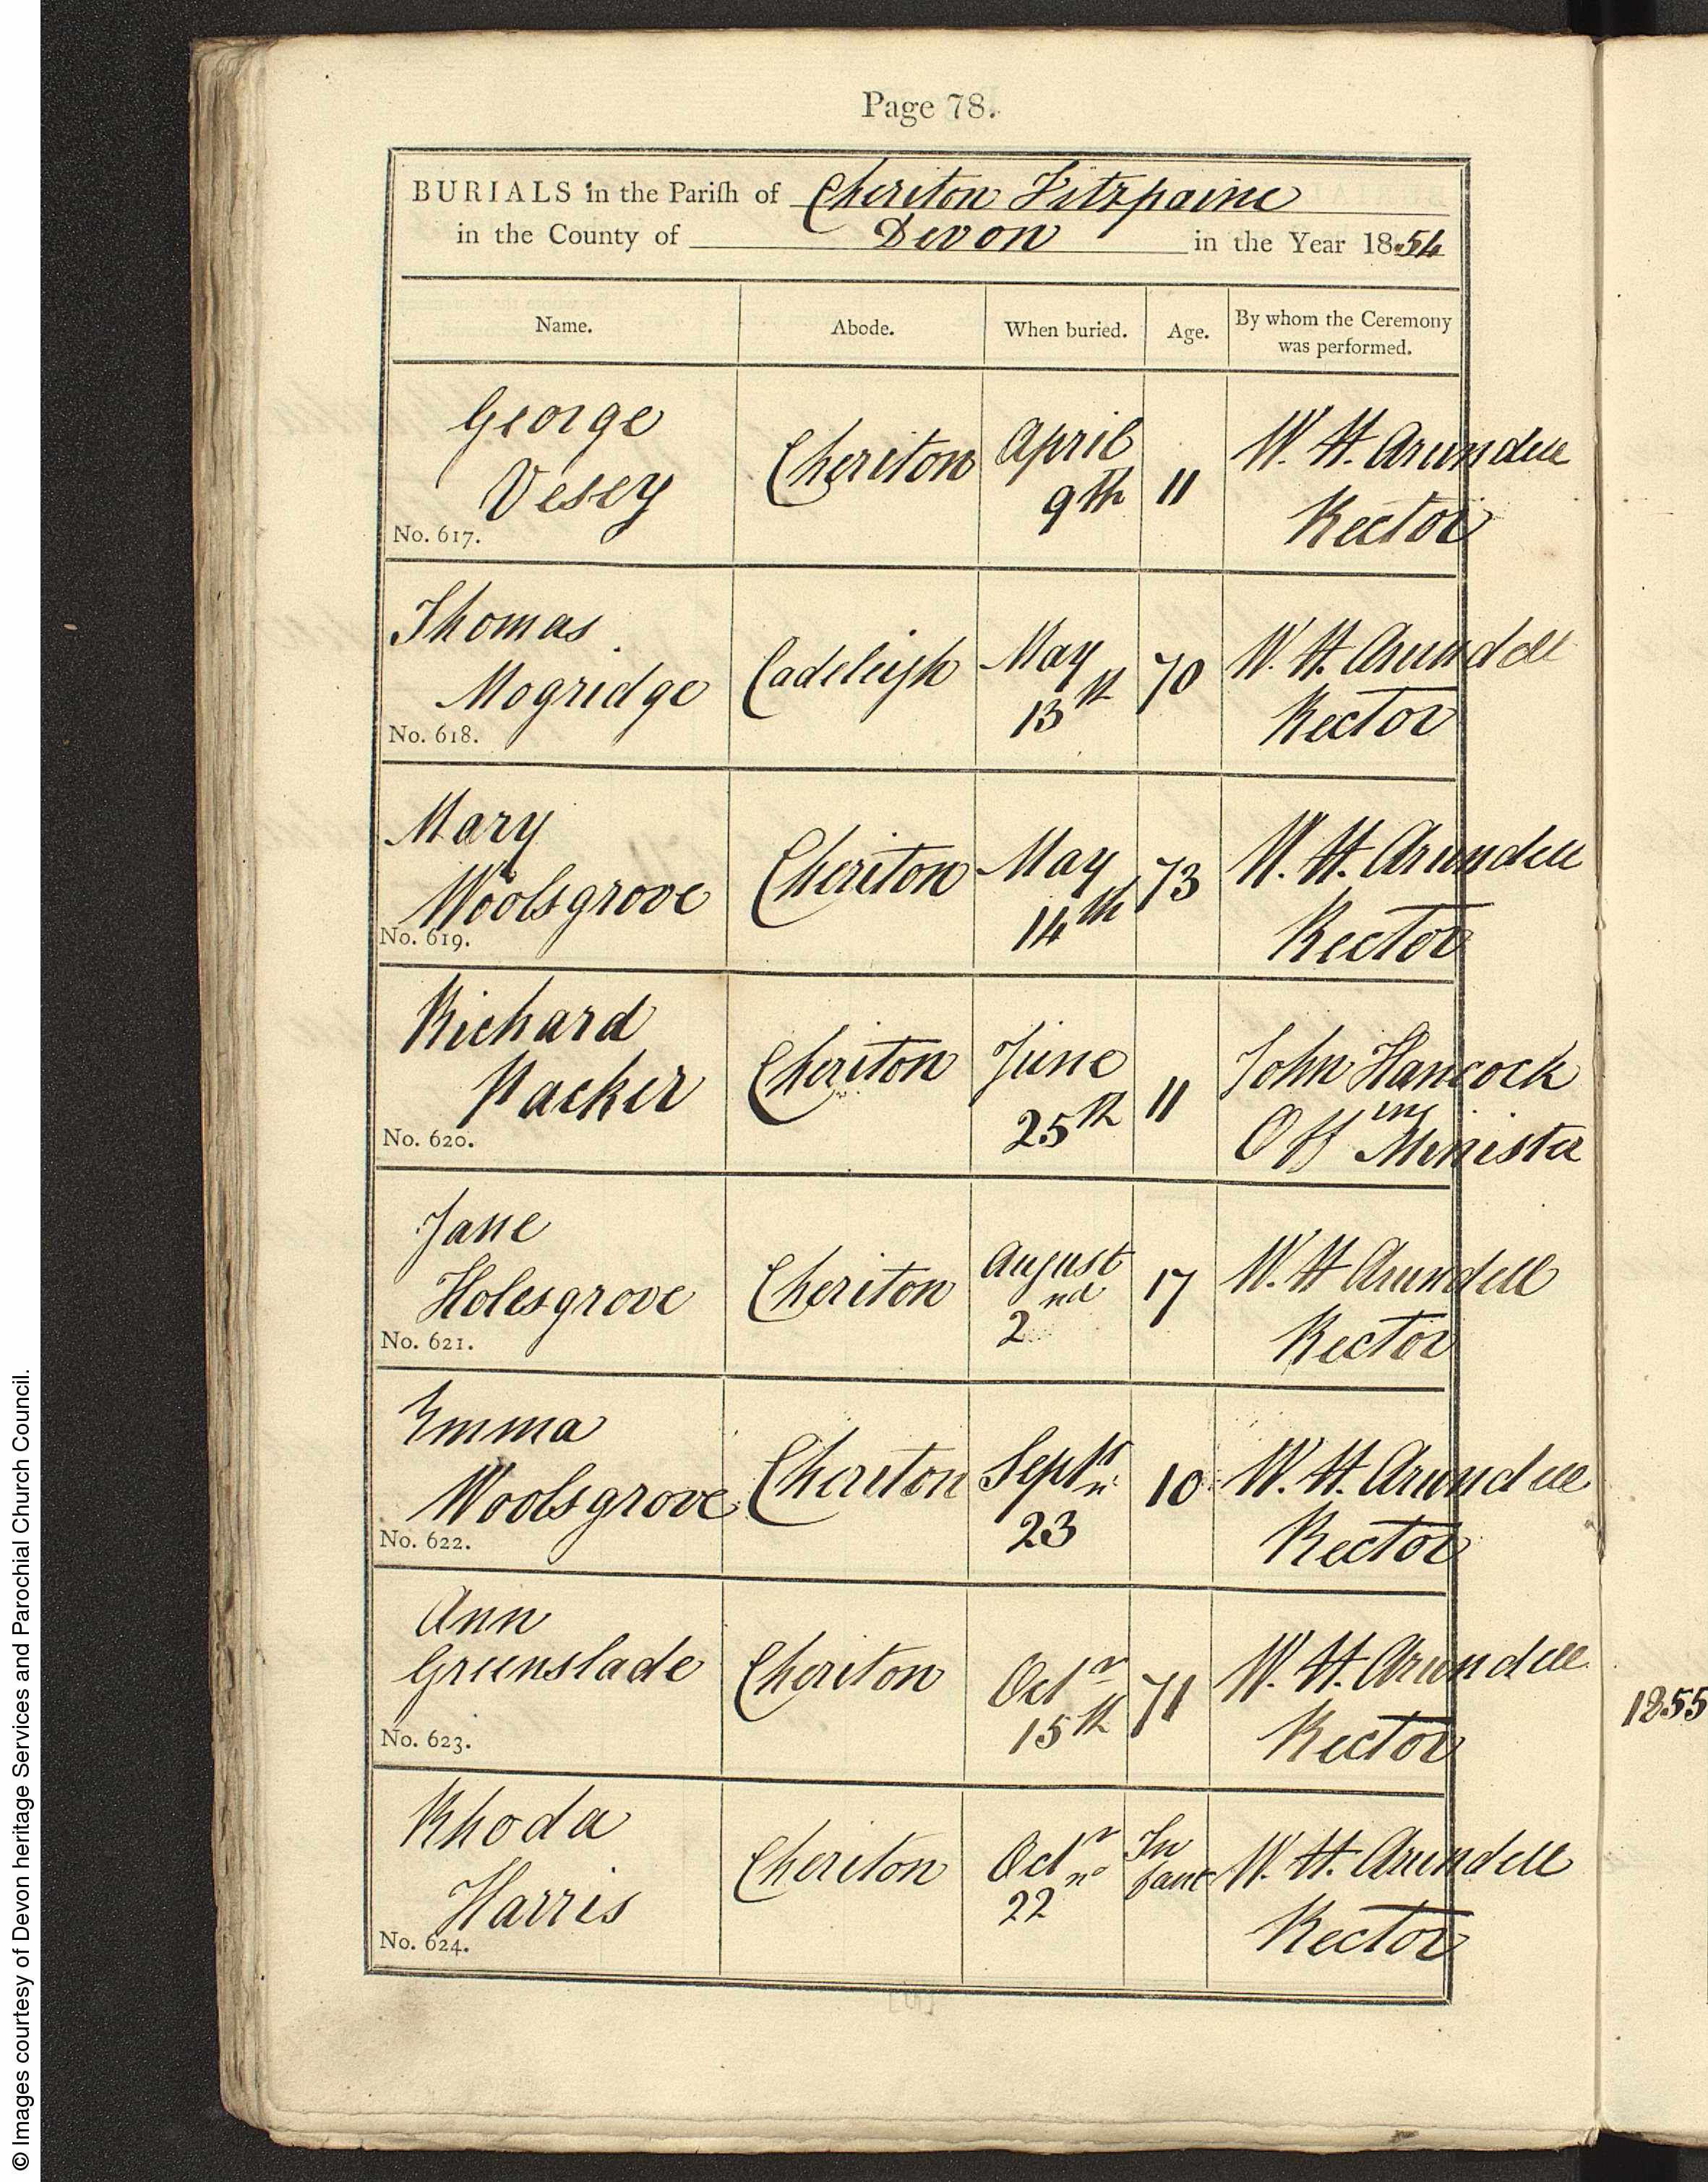 Page 78.
BURIALS in the Parish of Cheriton Fitzpaine
in the County of Devon in the Year 1854
Name. Abode. When buried. Age. By whom the Ceremony was performed.
George
Vesey
No. 617.
Cheriton
April
9th
11
W. H. Arundell
Rector
Thomas
Mogridge
No. 618.
Cadeleigh
May
13th
70
W. H. Arundell
Rector
Mary
Woolsgrove
No. 619.
Cheriton
May
14th
73
W. H. Arundell
Rector
Richard
Packer
No. 620.
Cheriton
June
25th
11
John Hancock
Offing Minister
Jane
Holesgrove
No. 621.
Cheriton
August
2nd
17
W. H Arundell
Rector
Emma
Woolsgrove
No. 622.
Cheriton
Septr
23
10
W. H. Arundell
Rector
Ann
Greenslade
No. 623.
Cheriton
Octr
15th
71
W. H. Arundell
Rector
Rhoda
Harris
No. 624.
Cheriton
Octr
22nd
In
fant
W. H. Arundell
Rector
1855
© Images courtesy of Devon heritage Services and Parochial Church Council.